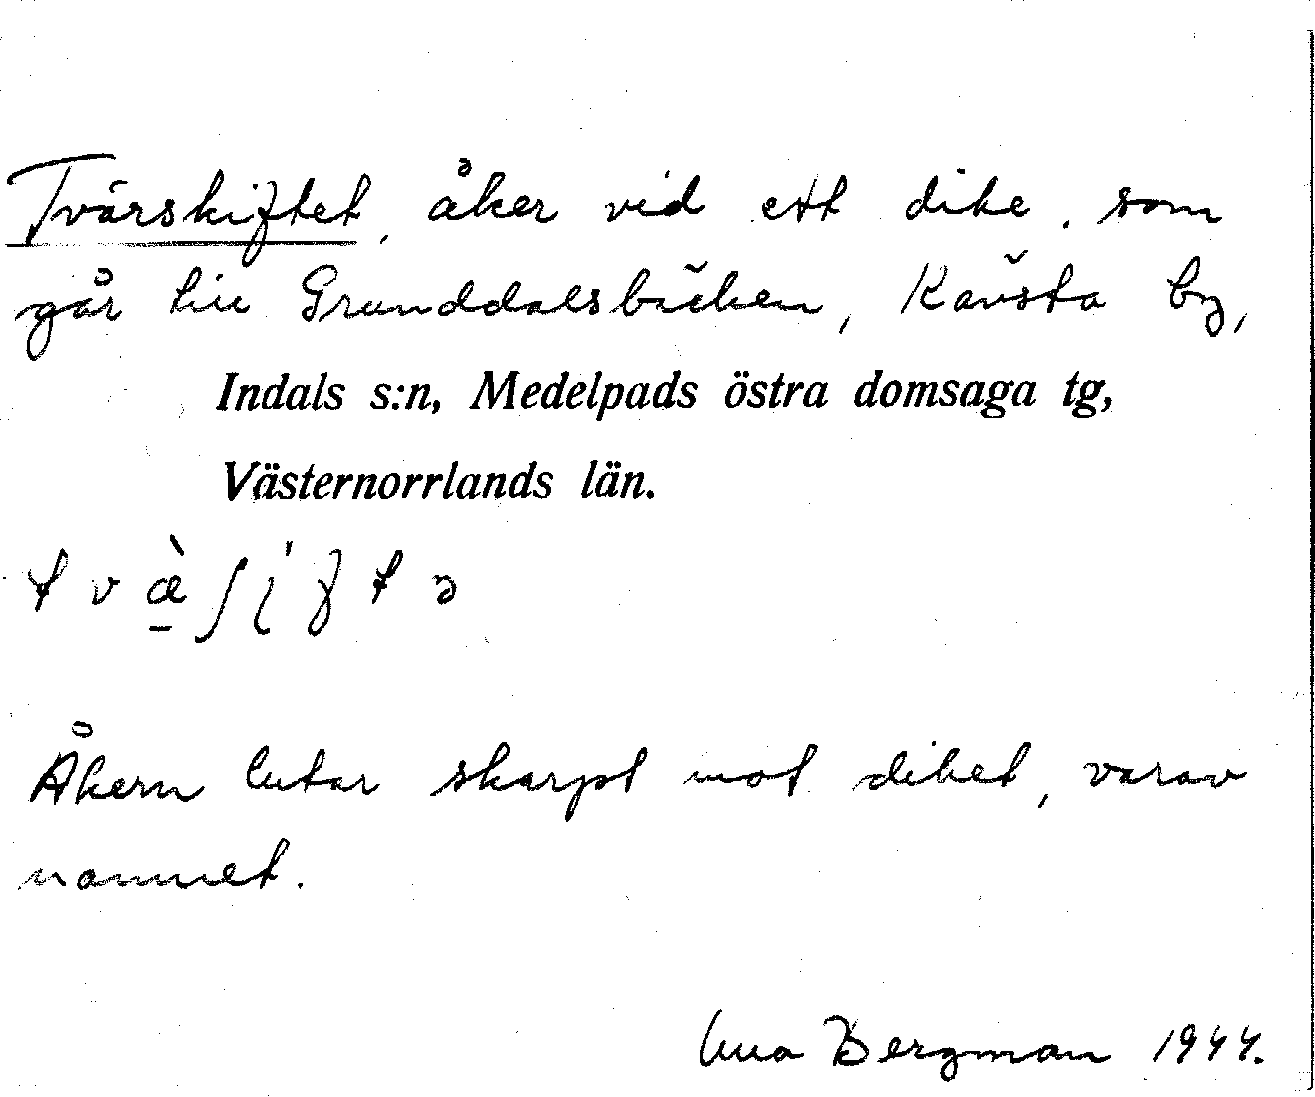 Tvärskiftet, åker vid ett dike, som
går till Grunddalsbäcken, Kävsta by,
Indals s:n, Medelpads östra domsaga tg,
Västernorrlands län.
Åkern lutar skarpt mot diket, varav
namnet.
Bergman 1944.